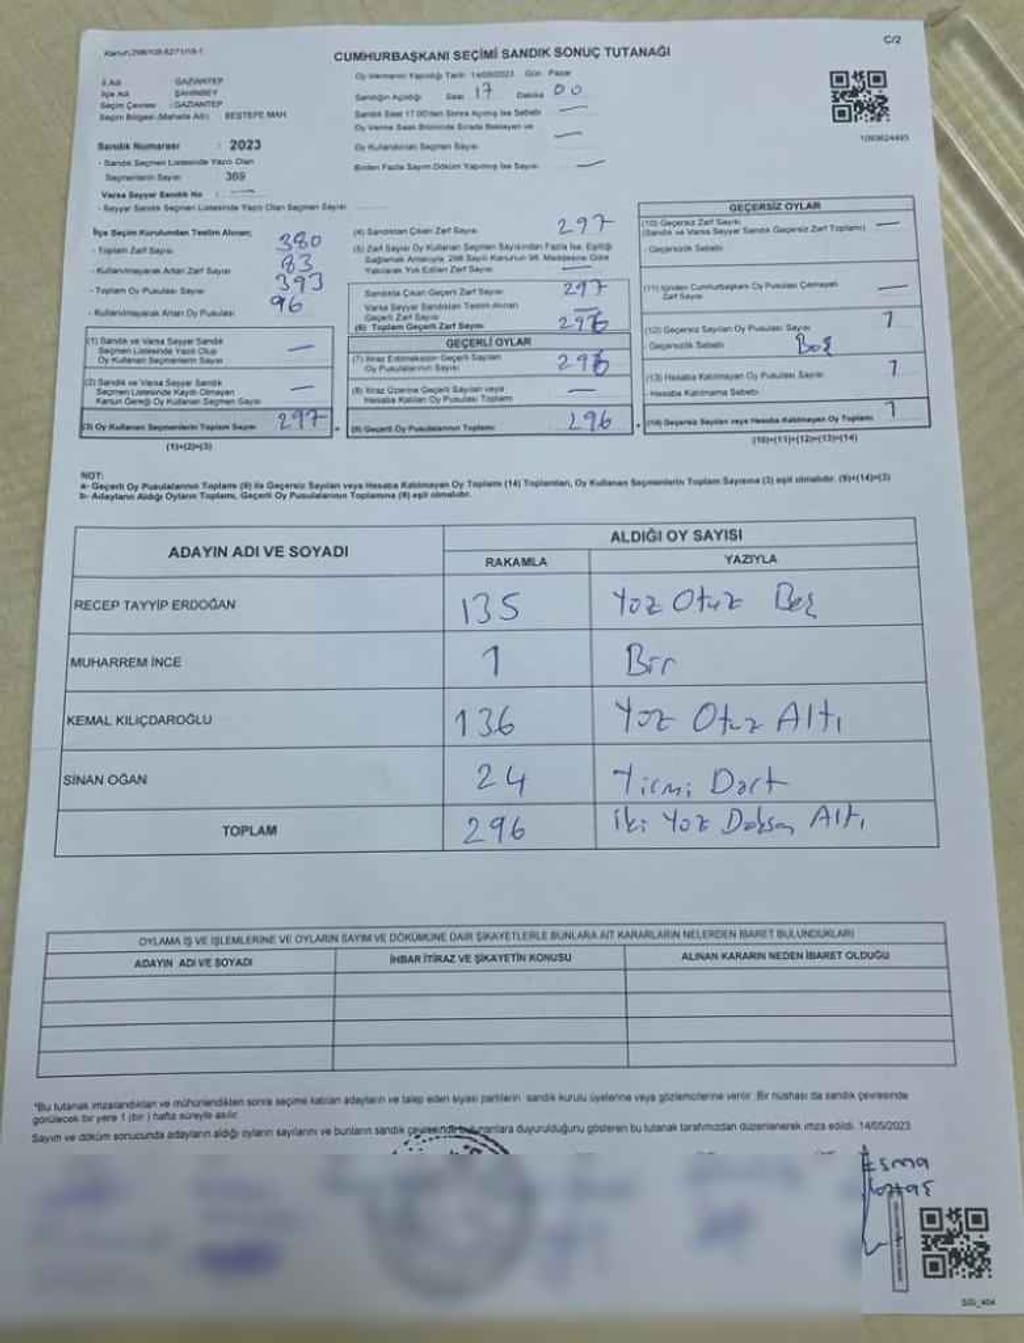 C/2
CUMHURBAŞKANI SEÇİMİ SANDIK SONUÇ TUTANAĞI
İl Adı : GAZİANTEP
İlçe Adı : ŞAHİNBEY
Seçim Çevresi : GAZİANTEP
Seçim Bölgesi (Mahalle Adı) : BEŞTEPE MAH.
Oy Vermenin Yapıldığı Tarih: 14/05/2023 Gün: Pazar
Sandığın Açıldığı Saat 17 Dakika 00
Sandık Saat 17.00'den Sonra Açılmış İse Sebebi —
Oy Verme Saati Bitiminde Sırada Bekleyen ve
Oy Kullandırılan Seçmen Sayısı —
Birden Fazla Sayım Döküm Yapılmış İse Sayısı —
Sandık Numarası : 2023
- Sandık Seçmen Listesinde Yazılı Olan
Seçmenlerin Sayısı 369
Varsa Seyyar Sandık No : —
- Seyyar Sandık Seçmen Listesinde Yazılı Olan Seçmen Sayısı
İlçe Seçim Kurulundan Teslim Alınan;
- Toplam Zarf Sayısı 380
- Kullanılmayarak Artan Zarf Sayısı 83
- Toplam Oy Pusulası Sayısı 393
- Kullanılmayarak Artan Oy Pusulası 96
(1) Sandık ve Varsa Seyyar Sandık
Seçmen Listesinde Yazılı Olup
Oy Kullanan Seçmenlerin Sayısı —
(2) Sandık ve Varsa Seyyar Sandık
Seçmen Listesinde Kaydı Olmayan
Kanun Gereği Oy Kullanan Seçmen Sayısı —
(3) Oy Kullanan Seçmenlerin Toplam Sayısı 297
(1)+(2)=(3)
(4) Sandıktan Çıkan Zarf Sayısı 297
(5) Zarf Sayısı Oy Kullanan Seçmen Sayısından Fazla İse, Eşitliği
Sağlamak Amacıyla, 298 Sayılı Kanunun 98. Maddesine Göre
Yakılarak Yok Edilen Zarf Sayısı —
Sandıkta Çıkan Geçerli Zarf Sayısı 297
Varsa Seyyar Sandıktan Teslim Alınan
Geçerli Zarf Sayısı —
(6) Toplam Geçerli Zarf Sayısı 296
GEÇERLİ OYLAR
(7) İtiraz Edilmeksizin Geçerli Sayılan
Oy Pusulalarının Sayısı 296
(8) İtiraz Üzerine Geçerli Sayılan veya
Hesaba Katılan Oy Pusulası Toplamı —
(9) Geçerli Oy Pusulalarının Toplamı 296
GEÇERSİZ OYLAR
(10) Geçersiz Zarf Sayısı
(Sandık ve Varsa Seyyar Sandık Geçersiz Zarf Toplamı) —
- Geçersizlik Sebebi
(11) İçinden Cumhurbaşkanı Oy Pusulası Çıkmayan
Zarf Sayısı —
(12) Geçersiz Sayılan Oy Pusulası Sayısı 1
Geçersizlik Sebebi Boş
(13) Hesaba Katılmayan Oy Pusulası Sayısı 1
- Hesaba Katılmama Sebebi
(14) Geçersiz Sayılan veya Hesaba Katılmayan Oy Toplamı 1
(10)+(11)+(12)+(13)=(14)
NOT:
a- Geçerli Oy Pusulalarının Toplamı (9) ile Geçersiz Sayılan veya Hesaba Katılmayan Oy Toplamı (14) Toplamları, Oy Kullanan Seçmenlerin Toplam Sayısına (3) eşit olmalıdır. (9)+(14)=(3)
b- Adayların Aldığı Oyların Toplamı, Geçerli Oy Pusulalarının Toplamına (9) eşit olmalıdır.
ADAYIN ADI VE SOYADI
ALDIĞI OY SAYISI
RAKAMLA YAZIYLA
RECEP TAYYİP ERDOĞAN 135 Yoz Otuz Beş
MUHARREM İNCE 1 Bir
KEMAL KILIÇDAROĞLU 136 Yoz Otuz Altı
SİNAN OĞAN 24 Yirmi Dört
TOPLAM 296 iki Yoz Doksan Altı
OYLAMA İŞ VE İŞLEMLERİNE VE OYLARIN SAYIM VE DÖKÜMÜNE DAİR ŞİKAYETLERLE BUNLARA AİT KARARLARIN NELERDEN İBARET BULUNDUKLARI
ADAYIN ADI VE SOYADI İHBAR İTİRAZ VE ŞİKAYETİN KONUSU ALINAN KARARIN NEDEN İBARET OLDUĞU
*Bu tutanak imzalandıktan ve mühürlendikten sonra seçime katılan adayların ve talep eden siyasi partilerin sandık kurulu üyelerine veya gözlemcilerine verilir. Bir nüshası da sandık çevresinde
görülecek bir yere 1 (bir) hafta süreyle asılır.
Sayım ve döküm sonucunda adayların aldığı oyların sayılarını ve bunların sandık çevresinde bulunanlara duyurulduğunu gösteren bu tutanak tarafımızdan düzenlenerek imza edildi. 14/05/2023
Esma